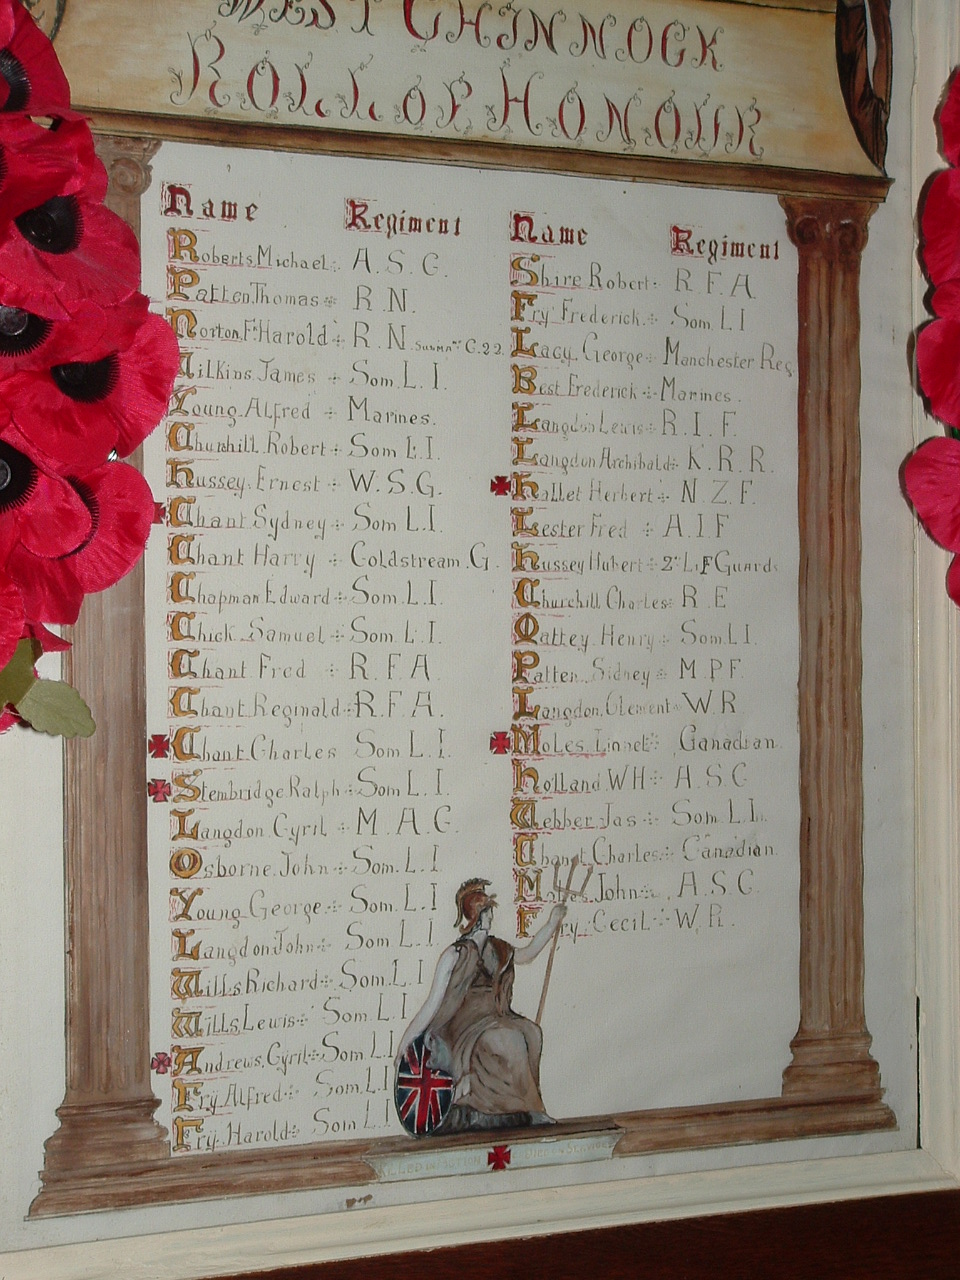 WEST CHINNOCK
ROLL OF HONOUR
Name Regiment
Roberts Michael A.S.C.
Patten Thomas R.N.
Norton F. Harold R.N. Submn C.22.
Wilkins James Som. L.I.
Young Alfred Marines.
Churchill Robert Som L.I.
Hussey Ernest W.S.G.
Chant Sydney Som L.I.
Chant Harry Coldstream.G.
Chapman Edward Som.L.I.
Chick Samuel Som L.I.
Chant Fred R.F.A
Chant Reginald R.F.A.
Chant Charles Som L.I.
Stembridge Ralph Som L.I.
Langdon Cyril M.A.C.
Osborne John Som.L.I
Young George Som.L.I
Langdon John Som L.I.
Wills Richard Som.L.I
Wills Lewis Som.L.I
Andrews Cyril Som.L.I
Fry Alfred Som.L.I
Fry Harold Som L.I
Name Regiment
Shire Robert R.F.A
Fry Frederick Som L.I
Lacy George Manchester Reg.
Best Frederick Marines.
Langdon Lewis R.I.F.
Langdon Archibald K.R.R.
Hallet Herbert N.Z.F.
Lester Fred A.I.F
Hussey Hubert 2nd L.F Guards
Churchill Charles R.E
Oattey Henry Som L.I.
Patten Sidney M.P.F.
Langdon Clement W.R.
Moles Linnet Canadian
Holland W H A.S.C
Webber Jas Som.L.I.
Chant Charles Canadian.
John A.S.C.
Fry Cecil W.R.
KILLED IN ACTION